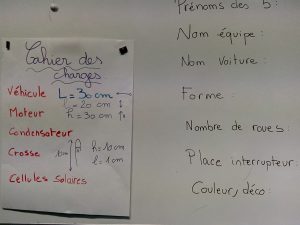 Cahier des
charges
Véhicule L = 30 cm
l = 20 cm
Moteur h = 30 cm
Condensateur
Crosse 6cm h = 10cm
l = 1 cm
Cellules solaires
Prénoms des 5 :
Nom équipe :
Nom Voiture :
Forme :
Nombre de roues :
Place interrupteur :
Couleur, déco :